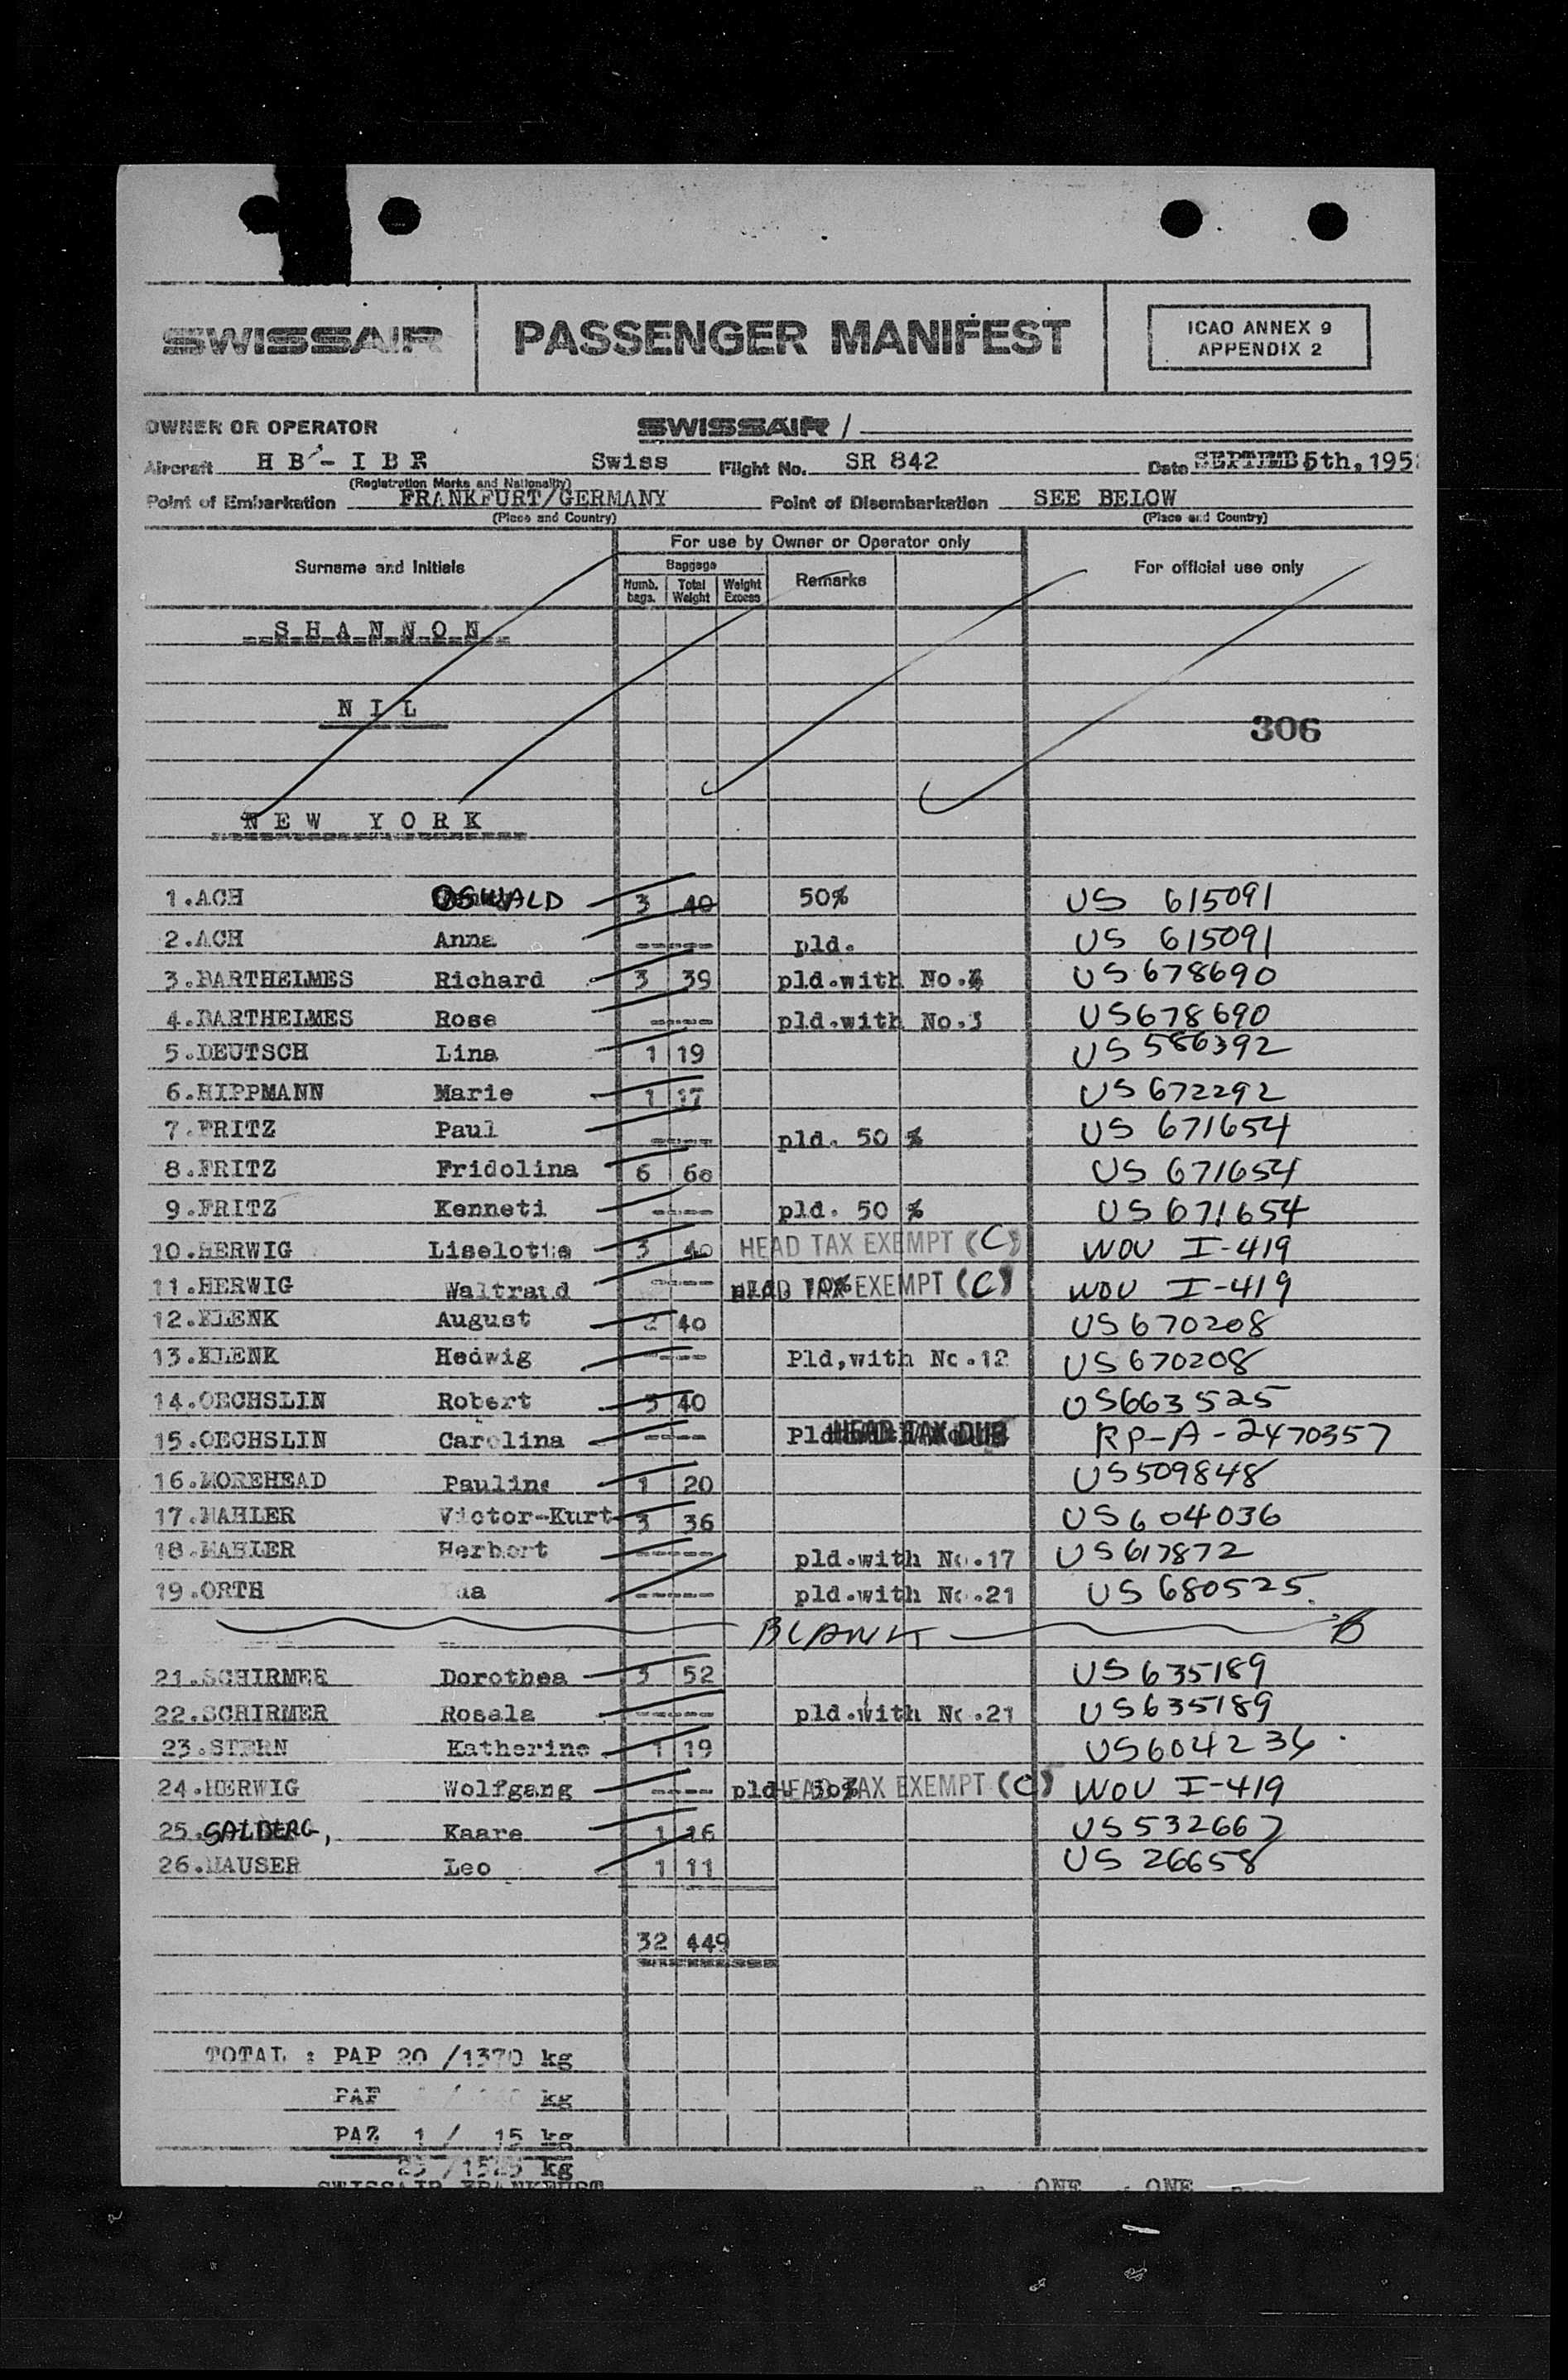 SWISSAIR PASSENGER MANIFEST ICAO ANNEX 9
APPENDIX 2
OWNER OR OPERATOR SWISSAIR /
Aircraft H B - I B R Swiss Flight No. SR 842 Date SEPTEMB 5th, 195
(Registration Marks and Nationality)
Point of Embarkation FRANKFURT/GERMANY Point of Disembarkation SEE BELOW
(Place and Country) (Place and Country)
For use by Owner or Operator only
Surname and Initials Baggage Remarks For official use only
Numb. bags. Total Weight Weight Excess
S H A N N O N
N I L
306
N E W Y O R K
1.ACH OSWALD 3 40 50% US 615091
2.ACH Anna ----- pld. US 615091
3.BARTHELMES Richard 3 39 pld.with No.4 US 678690
4.BARTHELMES Rose ----- pld.with No.3 US678690
5.DEUTSCH Lina 1 19 US 586392
6.HIPPMANN Marie 1 17 US 672292
7.FRITZ Paul ----- pld. 50 % US 671654
8.FRITZ Fridolina 6 60 US 671654
9.FRITZ Kenneti ----- pld. 50 % US 671654
10.HERWIG Liselotte 3 40 HEAD TAX EXEMPT (C) WOV I-419
11.HERWIG Waltraud ----- pld. 10% HEAD TAX EXEMPT (C) WOV I-419
12.KLENK August 2 40 US 670208
13.KLENK Hedwig ----- Pld,with No.12 US 670208
14.OECHSLIN Robert 3 40 US663525
15.OECHSLIN Carolina ----- Pld HEAD TAX DUE RP-A-2470357
16.MOREHEAD Pauline 1 20 US509848
17.MAHLER Victor-Kurt 3 36 US604036
18.MAHLER Herbert ----- pld.with No.17 US617872
19.ORTH ----- pld.with No.21 US 680525
BLANK
21.SCHIRMER Dorothea 3 52 US635189
22.SCHIRMER Rosala ----- pld.with No.21 US635189
23.STERN Katherine 1 19 US604236
24.HERWIG Wolfgang ---- pld. 50% HEAD TAX EXEMPT (C) WOV I-419
25. SALBERG, Kaare 1 16 US532667
26.HAUSER Leo 1 11 US 26658
32 449
TOTAL : PAP 20 /1370 kg
PAF / kg
PAZ 1 / 15 kg
25 /1525 kg
SWISSAIR FRANKFURT ONE ONE